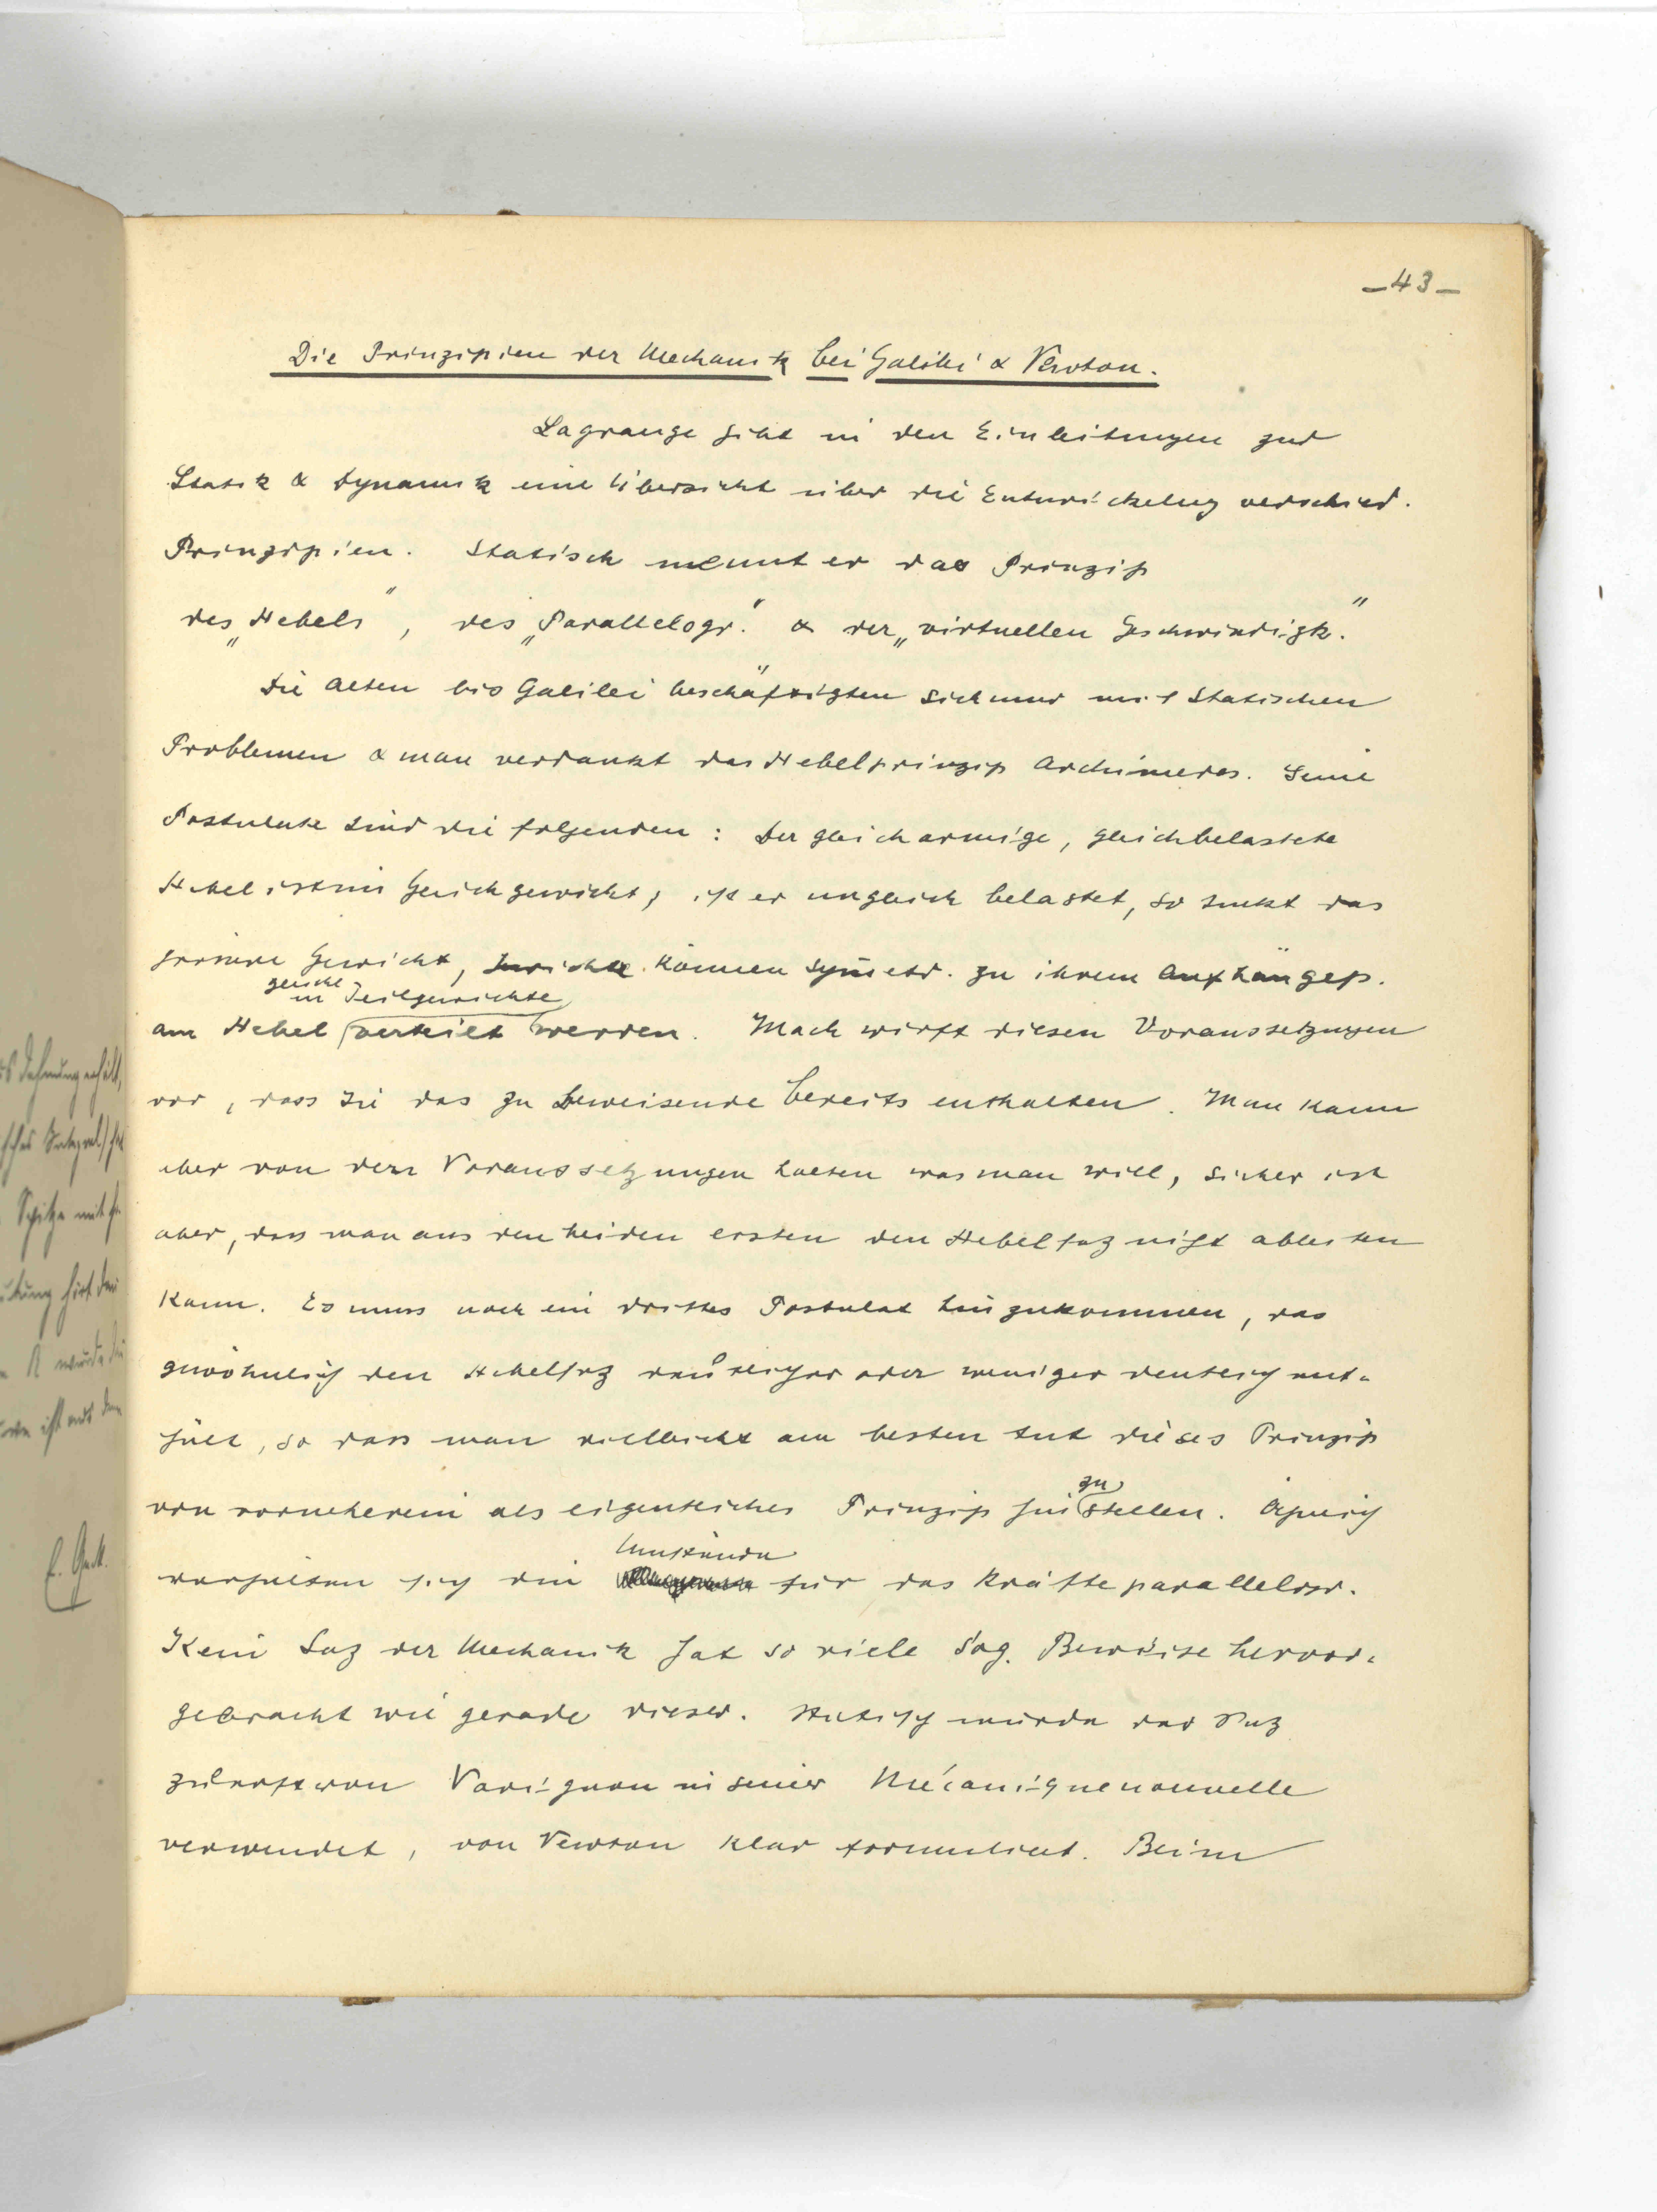 –43–
Die Prinzipien der Mechanik bei Galilei & Newton.
Lagrange gibt in den Einleitungen zur
Statik & Dynamik eine Übersicht über die Entwickelung verschied.
Prinzipien. Statisch nennt er das Prinzip
des „Hebels", des „Parallelogr." & der „virtuellen Geschwindigk."
Die Alten bis Galilei beschäftigten sich nur mit statischen
Problemen & man verdankt das Hebelprinzip Archimedes. Seine
Postulate sind die folgenden: Der gleicharmige, gleichbelastete
Hebel ist im Gleichgewicht, ist er ungleich belastet, so sinkt das
grössere Gewicht, Gewichte können symetr. zu ihrem Aufhängep.
gleiche in Teilgewichte
am Hebel verteilt werden. Mach wirft diesen Voraussetzungen
vor, dass sie das zu Beweisende bereits enthalten. Man kann
aber von den Voraussetzungen halten was man will, sicher ist
aber, dass man aus den beiden ersten den Hebelsaz nicht ableiten
kann. Es muss noch ein drittes Postulat hinzukommen, das
gewöhnlich den Hebelsaz deutlicher oder weniger deutlich ent-
hält, so dass man vielleicht am besten tut dieses Prinzip
zu
von vorneherein als eigentliches Prinzip hinstellen. Ähnlich
Umstände
verhalten sich die für das Kräfteparallelogr.
Kein Saz der Mechanik hat so viele sog. Beweise hervor-
gebracht wie gerade dieser. Statisch wurde der Saz
zuerst von Varignon in seiner Mécanique nouvelle
verwendet, von Newton klar formuliert. Beim